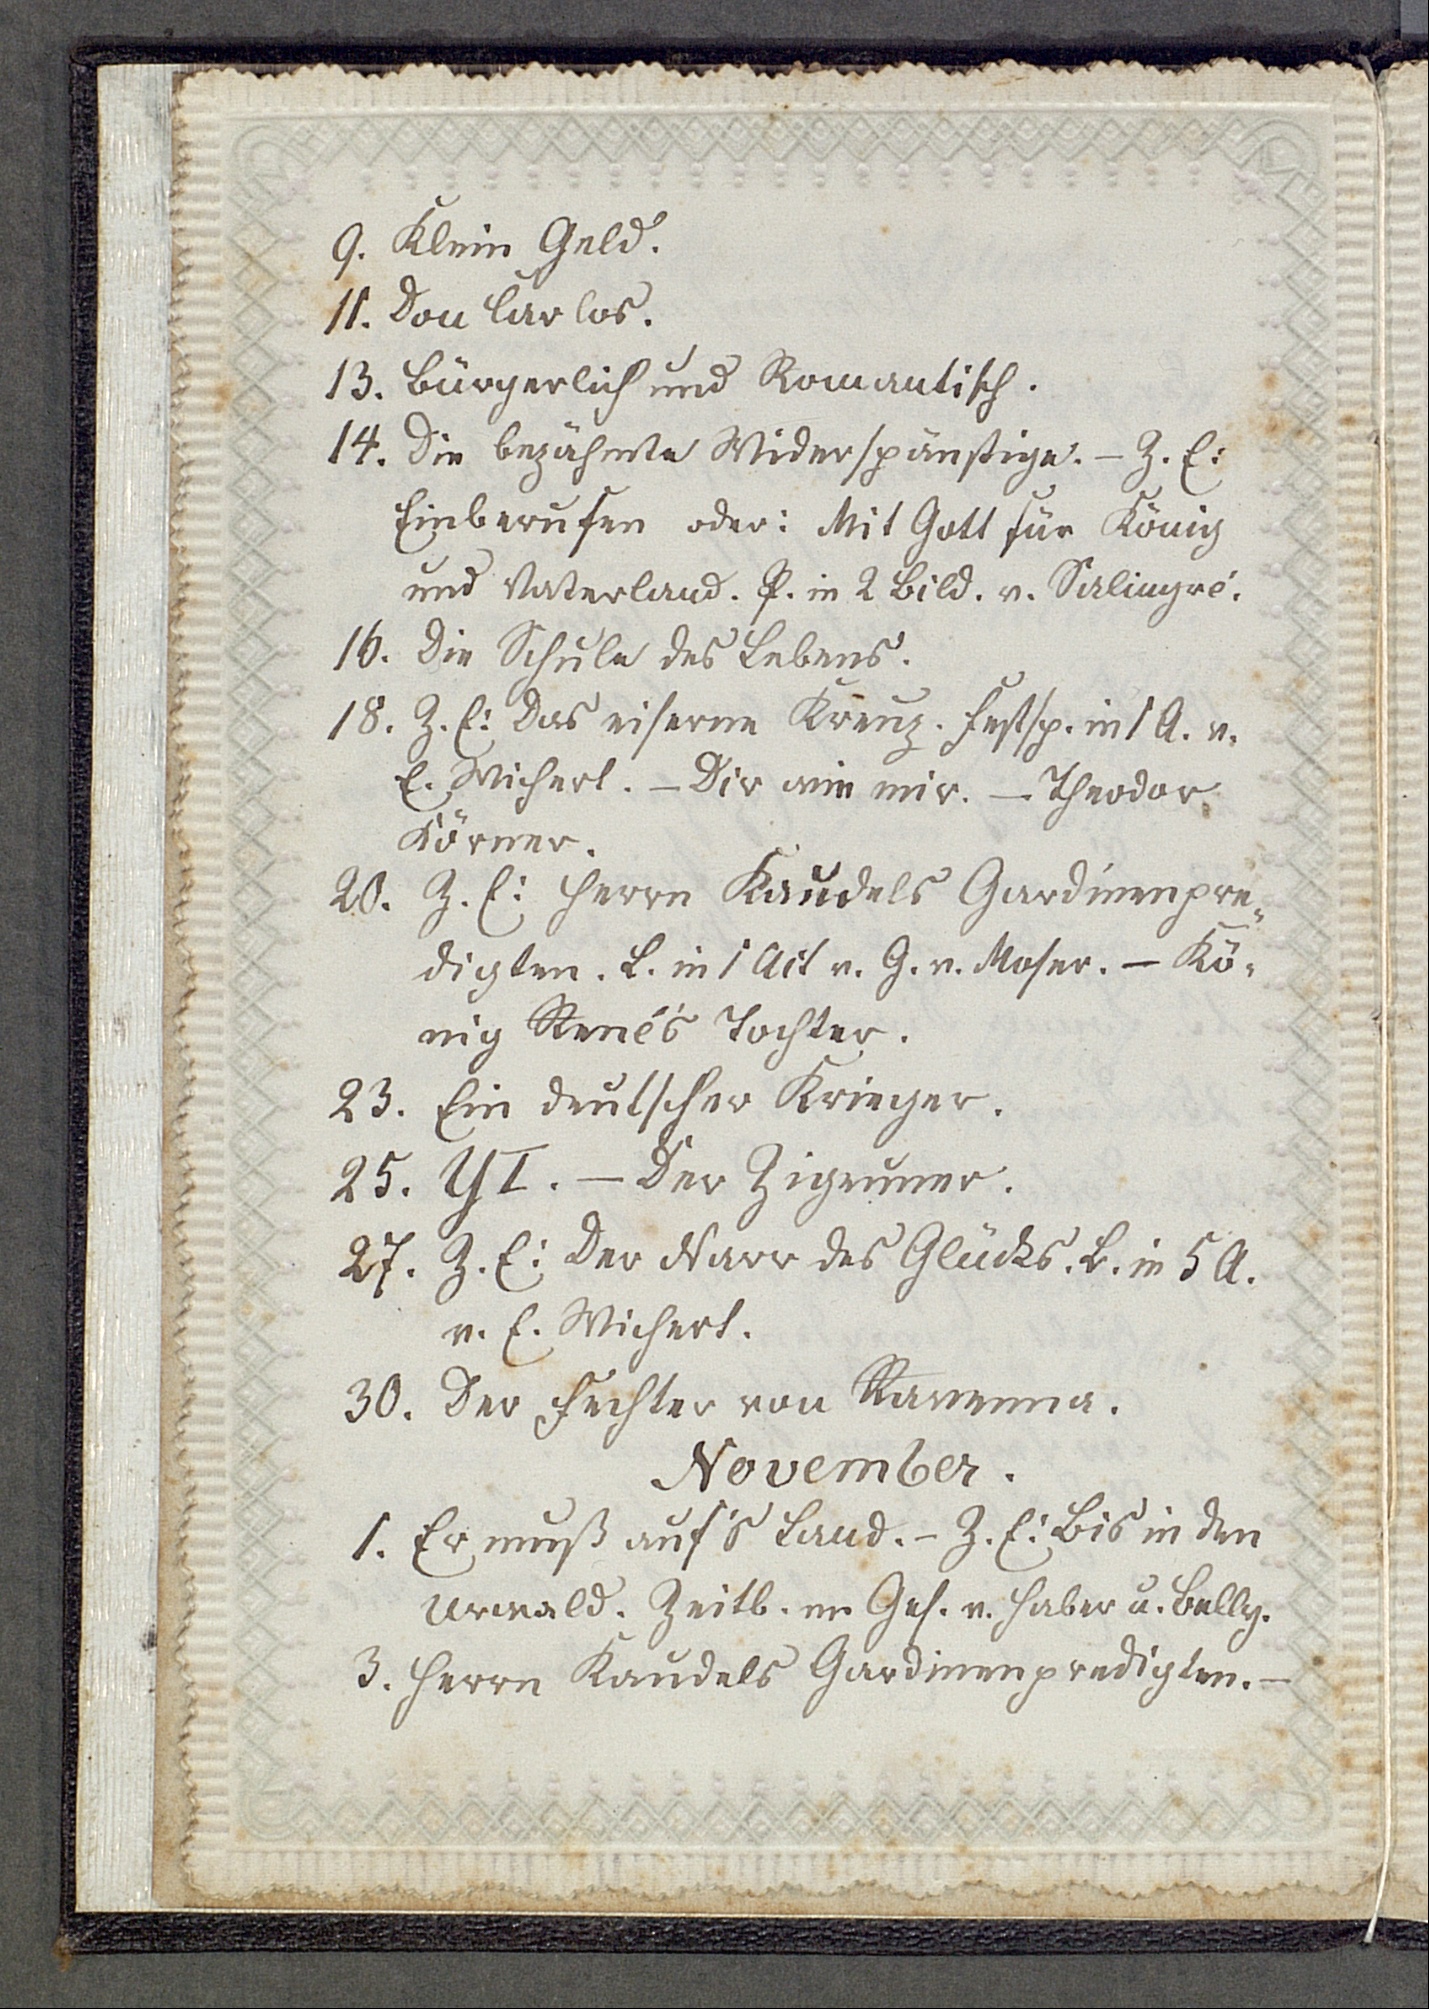 9. Klein Geld.
11. Don Carlos.
13. Bürgerlich und Romantisch.
14. Die bezähmte Widerspänstige. – Z. E:
Einberufen oder: Mit Gott für König
und Vaterland. P. in 2 Bild. v. Salingré.
16. Die Schule des Lebens.
18. Z. E: Das eiserne Kreuz. Festsp. in 1 A. v.
E. Wichert. – Dir wie mir. – Theodor
Körner.
20. Z. E: Herrn Kaudels Gardinenpre„
digten. L. in 1 Act v. G. v. Moser. – Kö-
nig René's Tochter.
23. Ein deutscher Krieger.
25. Y I. – Der Zigeuner.
27. Z. E: Der Narr des Glücks. L. in 5 A.
v. E. Wichert.
30. Der Fechter von Ravenna.
November.
1. Er muß auf's Land. – Z. E: Bis in den
Urwald. Zeitb. m Ges. v. Haber u. Belly.
3. Herrn Kaudels Gardinenpredigten. –